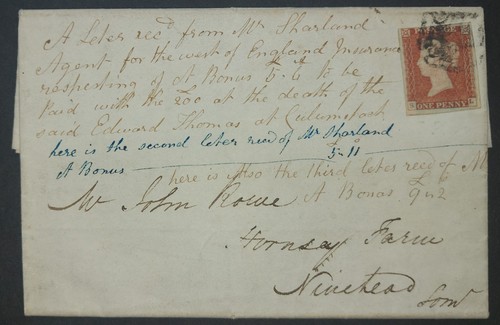 A Leter recd from Mr Sharland
Agent for the west of England Insurance
respesting of A Bonus £5.6 to be
Paid with the 200 at the death of the
said Edward Thomas at Culumstock
here is the second leter recd of Mr Sharland
A Bonus £5-11
here is Also the third leter recd of M
A Bonas £9 "2
Mr John Rowe
Hornsey Farm
Ninehead
Somt
POSTAGE
ONE PENNY
L